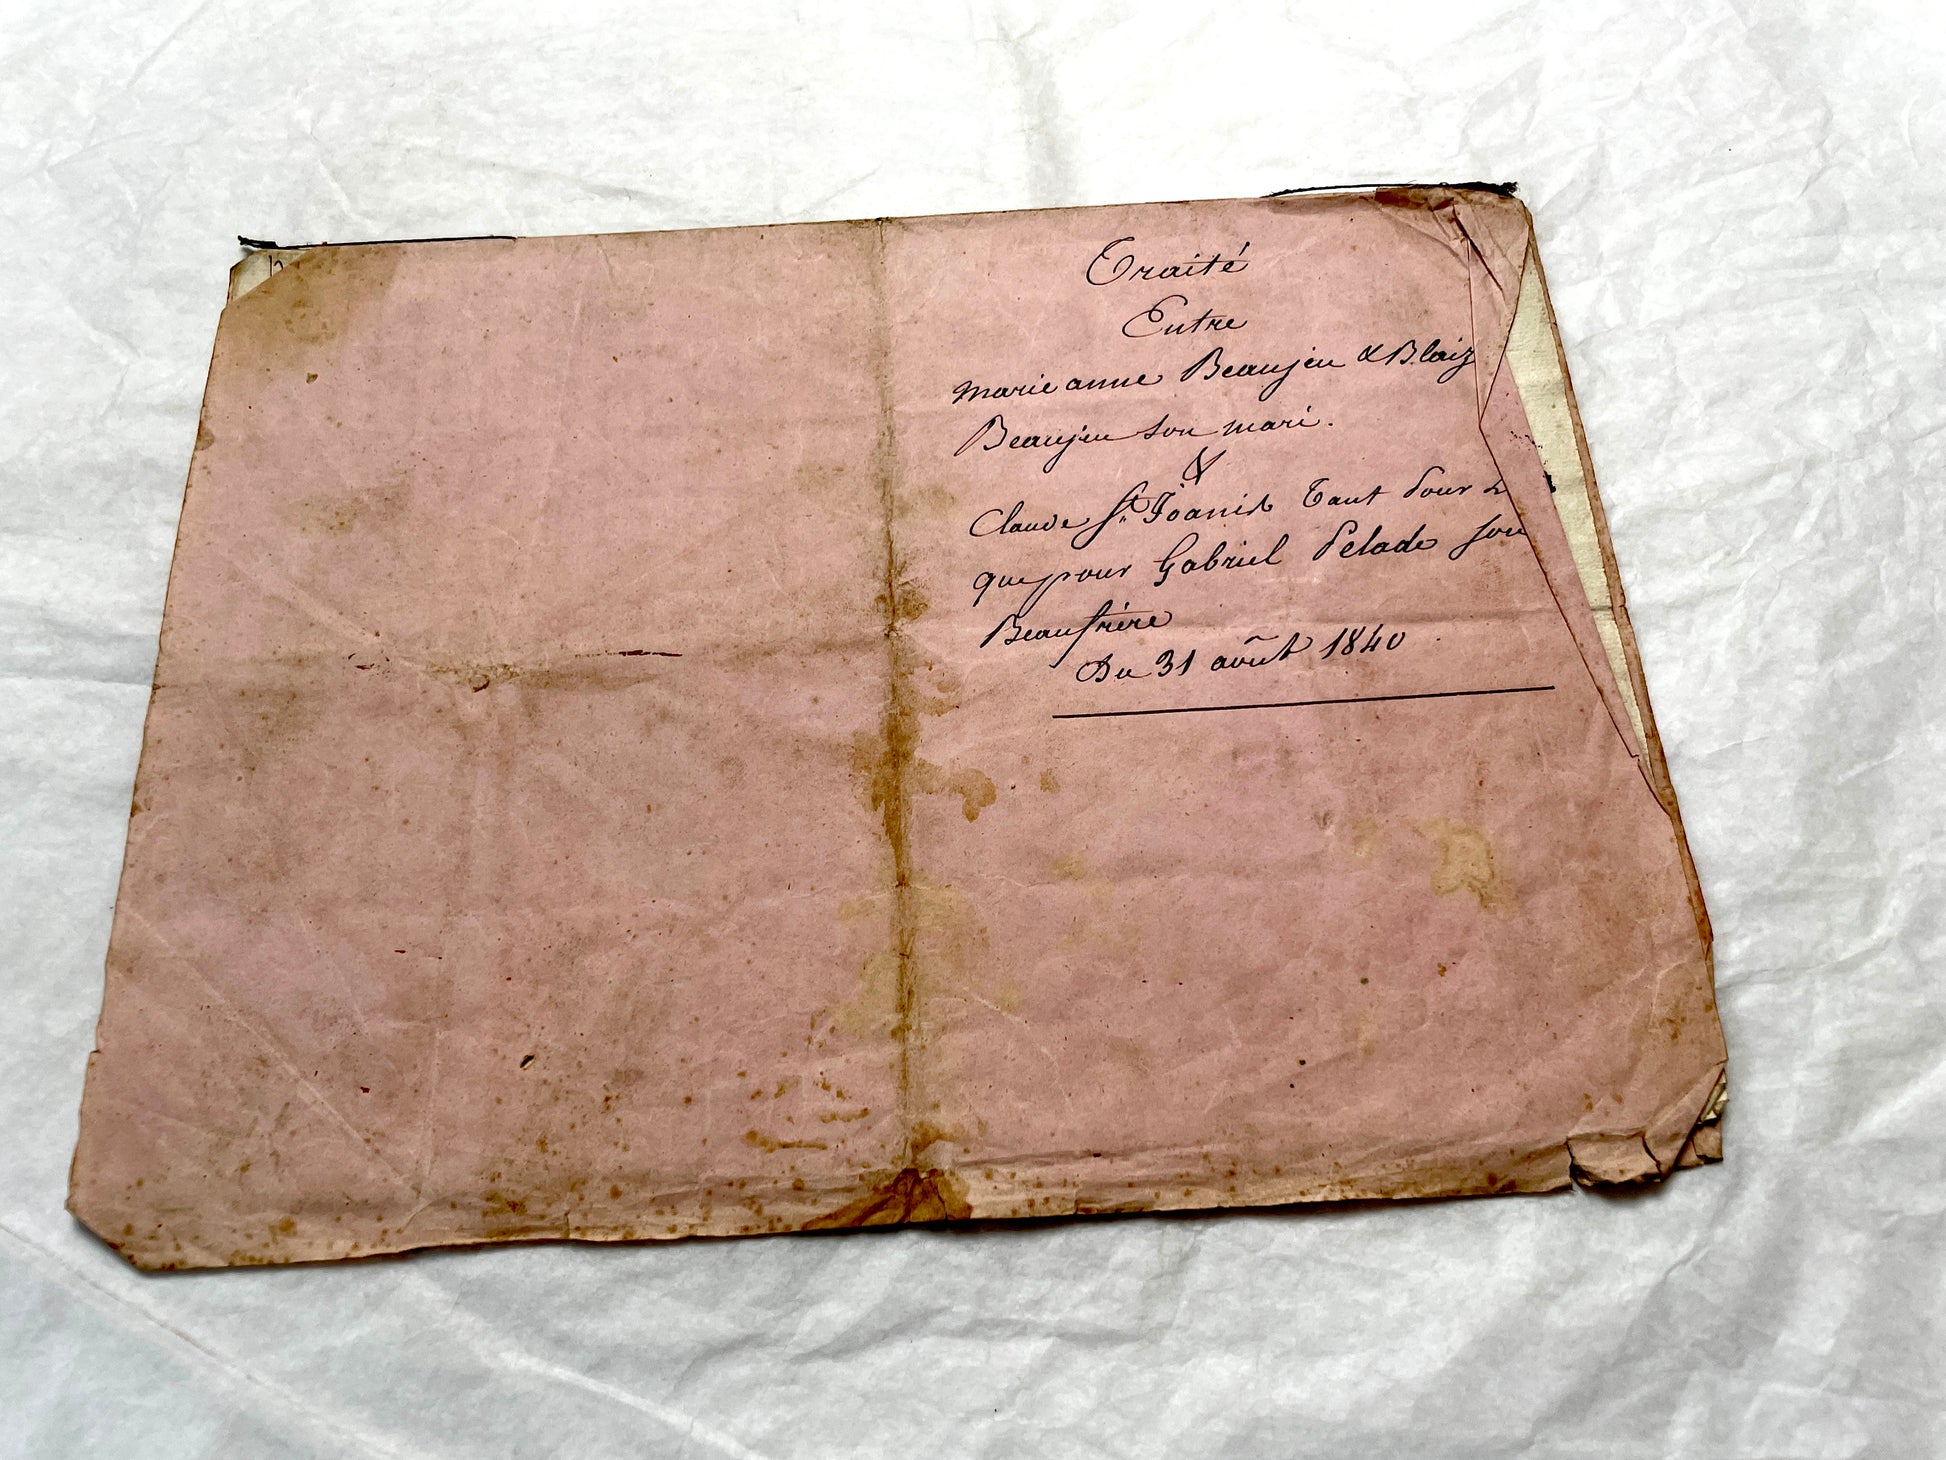 Traité
Entre
Marie anne Beaujeu & Blaiz
Beaujeu son mari.
&
Claude St. Joanis Tant pour
que pour Gabriel Pelade son
Beaufrère
Du 31 août 1840